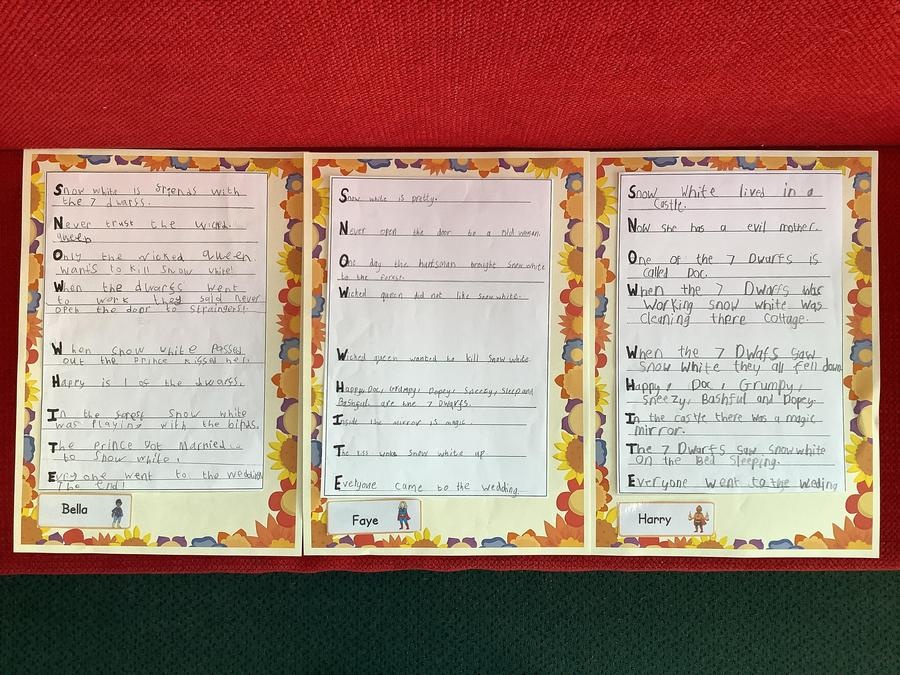 Snow white is friends with
the 7 dwarfs.
Never trust the wicked
queen
Only the wicked queen
wants to kill Snow white!
When the dwarfs went
to work they said never
open the door to straingers!
When snow white passed
out the Prince kissed her.
Happy is 1 of the dwarfs.
In the forest Snow white
was Playing with the birds.
The Prince Got Married
to Snow white!
went to the wedding
The end!
Bella
Snow white is pretty.
Never open the door to a old woman.
One day the huntsman brought Snow white
to the forest.
Wicked queen did not like snow white.
Wicked queen wanted to kill Snow white
Happy, Doc, Grumpy, Dopey, Sneezy, Sleep and
Bashful are the 7 Dwarfs.
Inside the mirror is magic.
The kiss woke Snow white up
Everyone came to the wedding.
Faye
Snow White lived in a
Castle.
Now she has a evil mother.
One of the 7 Dwarfs is
called Doc.
When the 7 Dwarfs was
Working snow white was
Cleaning there Cottage.
When the 7 Dwafs saw
Snow White they all fell down
Happy, Doc, Grumpy,
Sneezy, Bashful and Dopey
In the castle there was a magic
mirror.
The 7 Dwarfs saw snow white
on the Bed Sleeping.
Everyone went to the weding
Harry